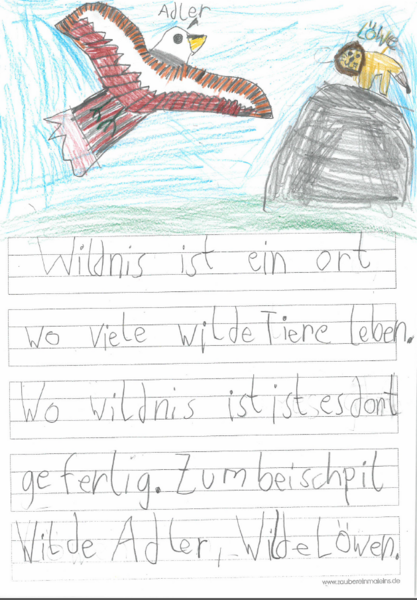 Adler
Löwe
Wildnis ist ein ort
wo viele wilde Tiere leben.
Wo wildnis ist ist es dort
gefertig. Zum beischpil
Wilde Adler, Wilde Löwen.
www.zaubereinmaleins.de